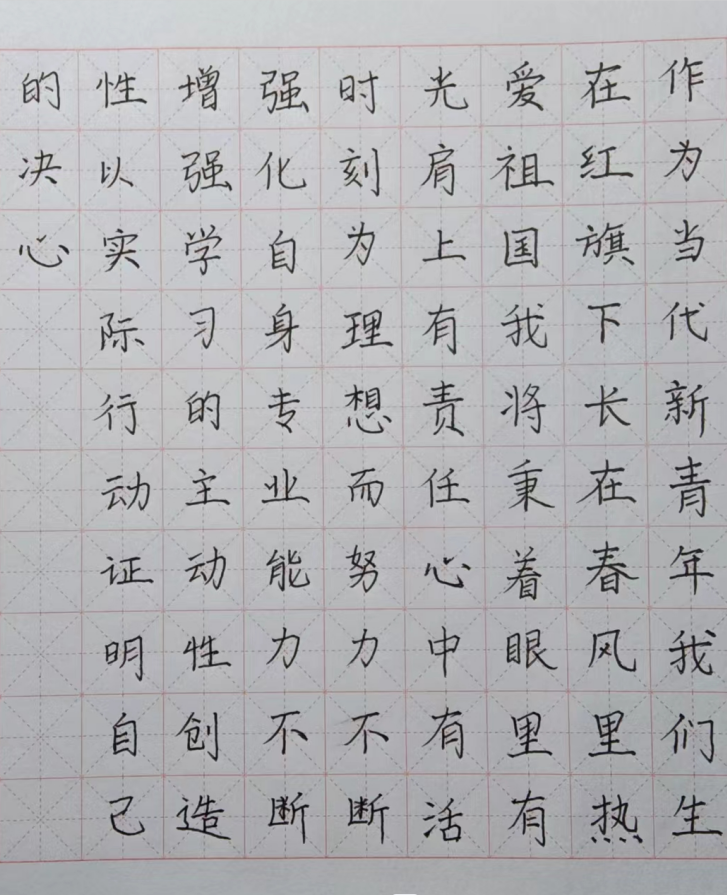 作为当代新青年我们生
在红旗下长在春风里热
爱祖国我将秉着眼里有
光肩上有责任心中有活
时刻为理想而努力不断
强化自身专业能力不断
增强学习的主动性创造
性以实际行动证明自己
的决心